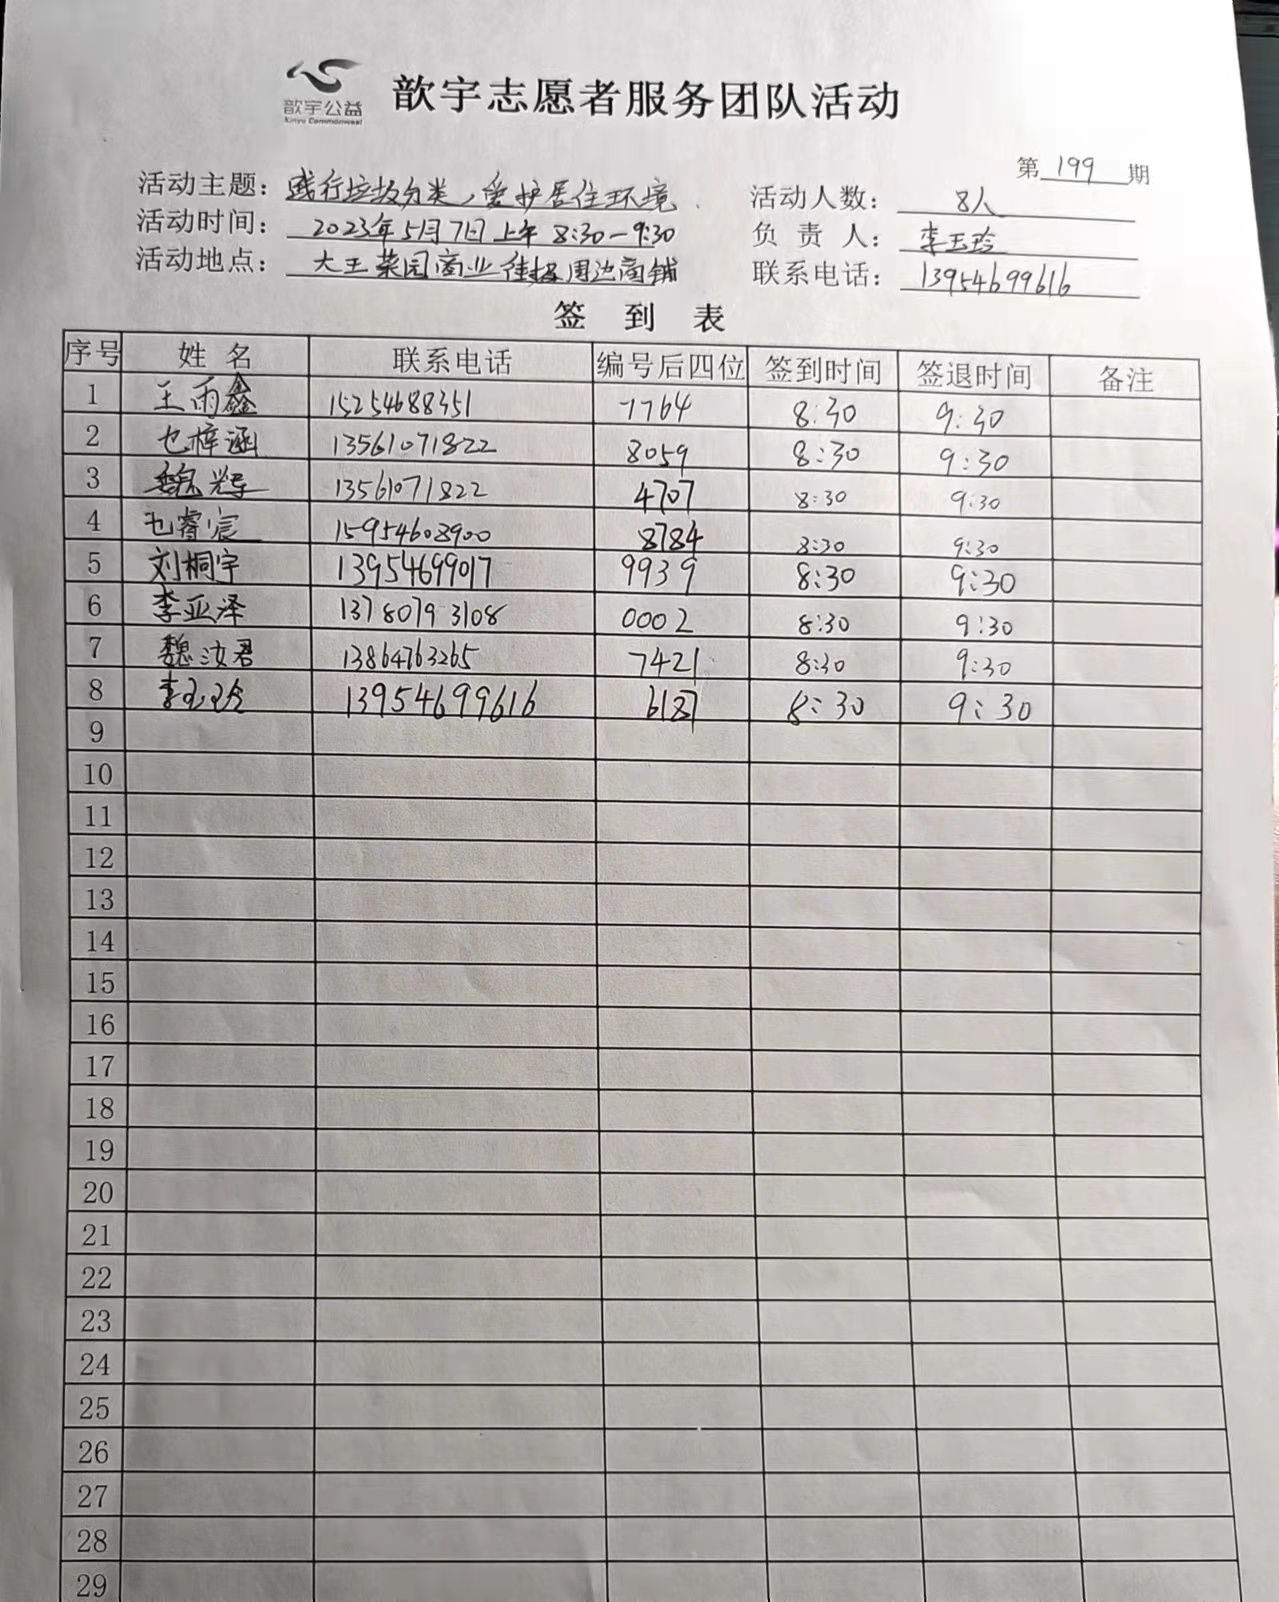 歆宇公益
Xinyu Commonweal
歆宇志愿者服务团队活动
第 199 期
活动主题： 践行垃圾分类，爱护居住环境
活动人数： 8人
活动时间： 2023年5月7日上午 8:30-9:30
负责人： 李玉玲
活动地点： 大王菜园商业街及周边商铺
联系电话： 13954699616
签到表
序号 姓名 联系电话 编号后四位 签到时间 签退时间 备注
1 王雨鑫 15254688351 7764 8:30 9:30
2 梓涵 13561071822 8059 8:30 9:30
3 魏 13561071822 4707 8:30 9:30
4 睿宸 15954608900 8784 8:30 9:30
5 刘桐宇 13954699017 9939 8:30 9:30
6 李亚泽 13780793108 0002 8:30 9:30
7 魏汝君 13864763265 7421 8:30 9:30
8 李玉玲 13954699616 6187 8:30 9:30
9
10
11
12
13
14
15
16
17
18
19
20
21
22
23
24
25
26
27
28
29